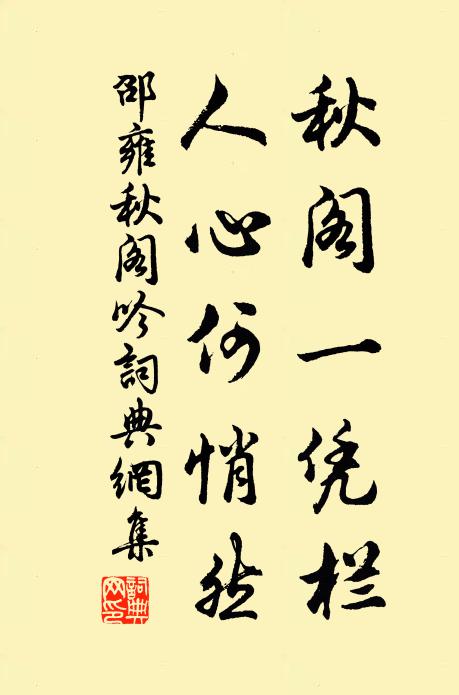 秋阁一凭栏
人心何悄然
邵雍秋阁吟詞典網集
詞典网印